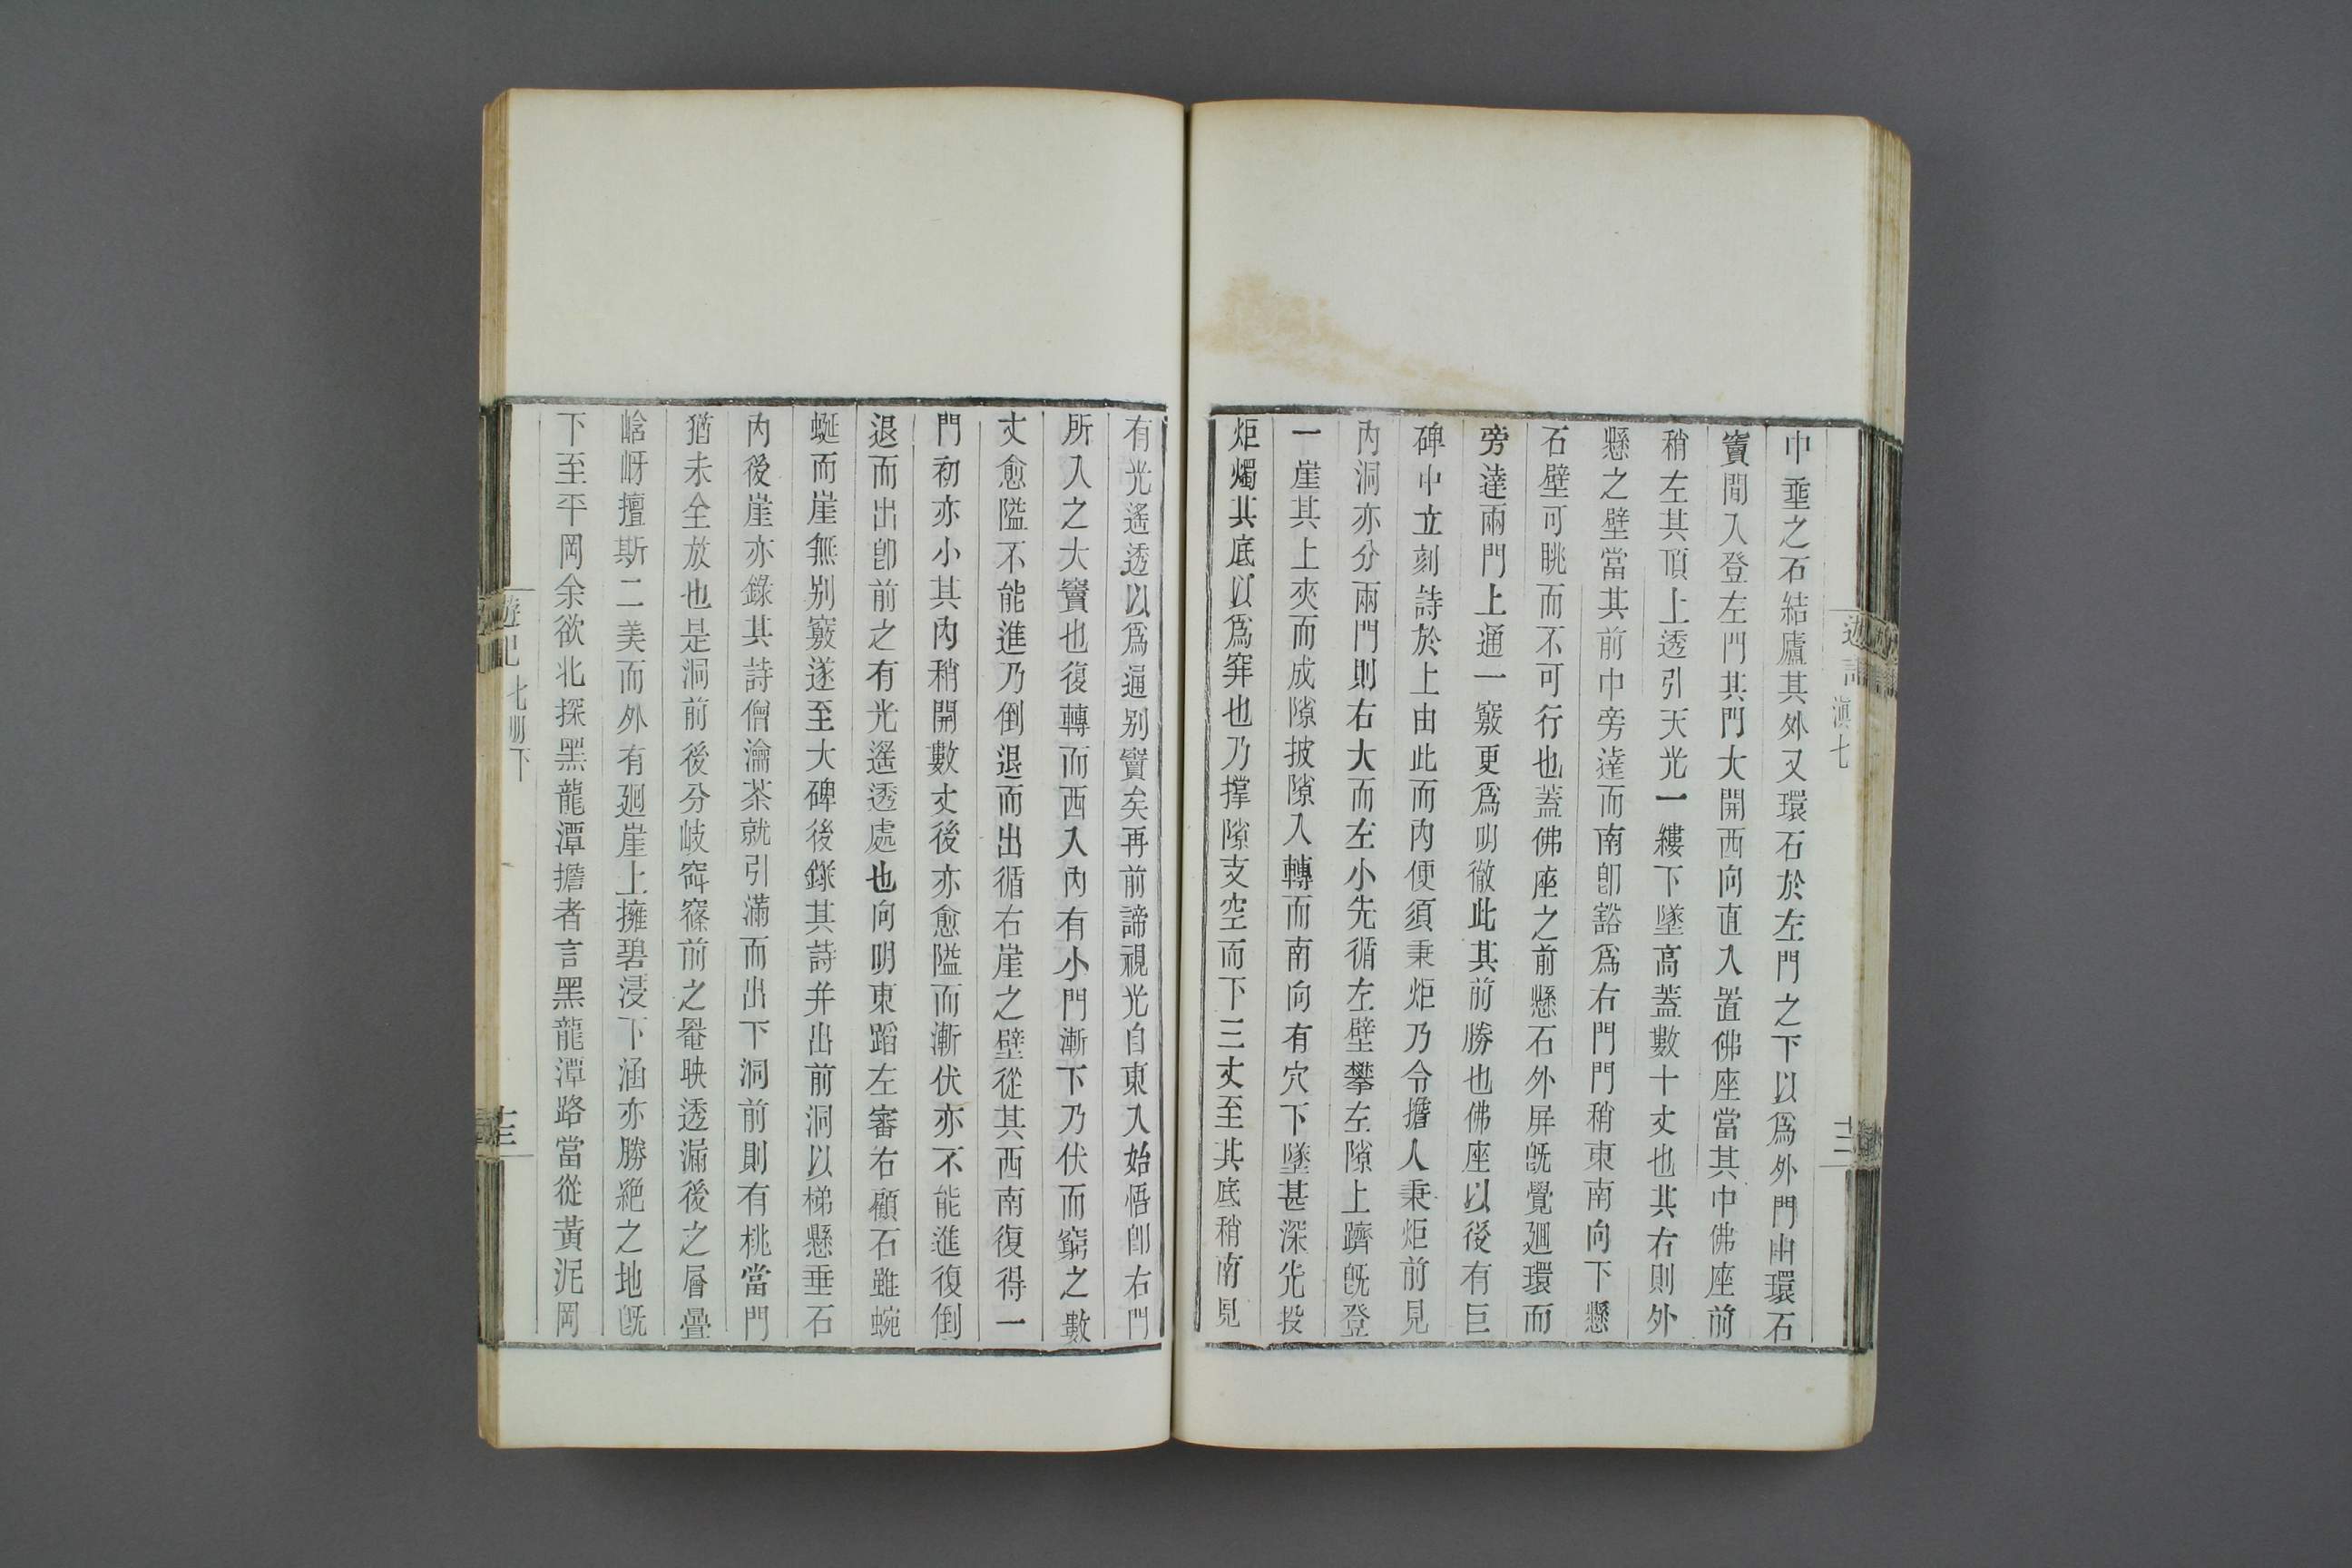 遊記
滇七
十三
中垂之石結廬其外又環石於左門之下以爲外門由環石
竇間入登左門其門大開西向直入置佛座當其中佛座前
稍左其頂上透引天光一縷下墜高蓋數十丈也其右則外
懸之壁當其前中旁達而南卽豁爲右門門稍東南向下懸
石壁可眺而不可行也蓋佛座之前懸石外屏旣覺迴環而
旁達兩門上通一竅更爲明徹此其前勝也佛座以後有巨
碑中立刻詩於上由此而內便須秉炬乃令擔人秉炬前見
內洞亦分兩門則右大而左小先循左壁攀左隙上躋旣登
一崖其上夾而成隙披隙入轉而南向有穴下墜甚深先投
炬燭其底以爲穽也乃撑隙支空而下三丈至其底稍南見
有光遙透以爲通别竇矣再前諦視光自東入始悟卽右門
所入之大竇也復轉而西入內有小門漸下乃伏而窮之數
丈愈隘不能進乃倒退而出循右崖之壁從其西南復得一
門初亦小其內稍開數丈後亦愈隘而漸伏亦不能進復倒
退而出卽前之有光遙透處也向明東蹈左審右顧石雖蜿
蜒而崖無别竅遂至大碑後錄其詩并出前洞以梯懸垂石
內後崖亦錄其詩僧瀹茶就引滿而出下洞前則有桃當門
猶未全放也是洞前後分岐窱窱前之罨映透漏後之層疊
崡岈擅斯二美而外有迴崖上擁碧浸下涵亦勝絶之地旣
下至平岡余欲北探黑龍潭擔者言黑龍潭路當從黃泥岡
遊記
七册下
十三